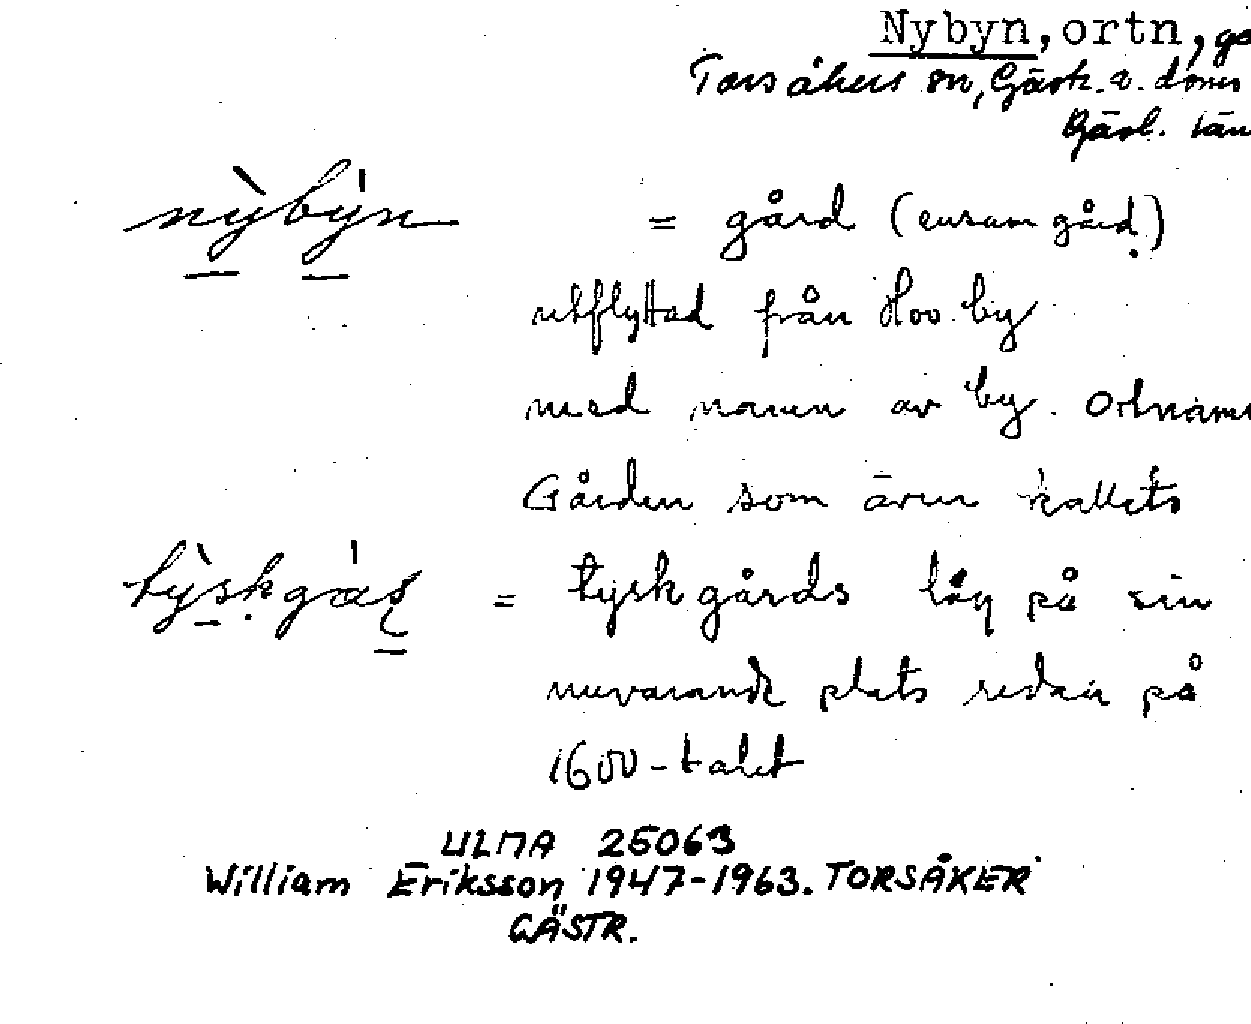 Nybyn, ortn, gå
Torsåkers sn, Gästr. ö. doms
Gävl. län
nỳbýn = gård (ensam gård)
utflyttad från Hoo by
med namn av by. Ortnamn
Gården som även kallats
tỳskgás = tysk gårds låg på sin
nuvarande plats redan på
1600-talet
ULMA 25063
William Eriksson 1947-1963. TORSÅKER
GÄSTR.